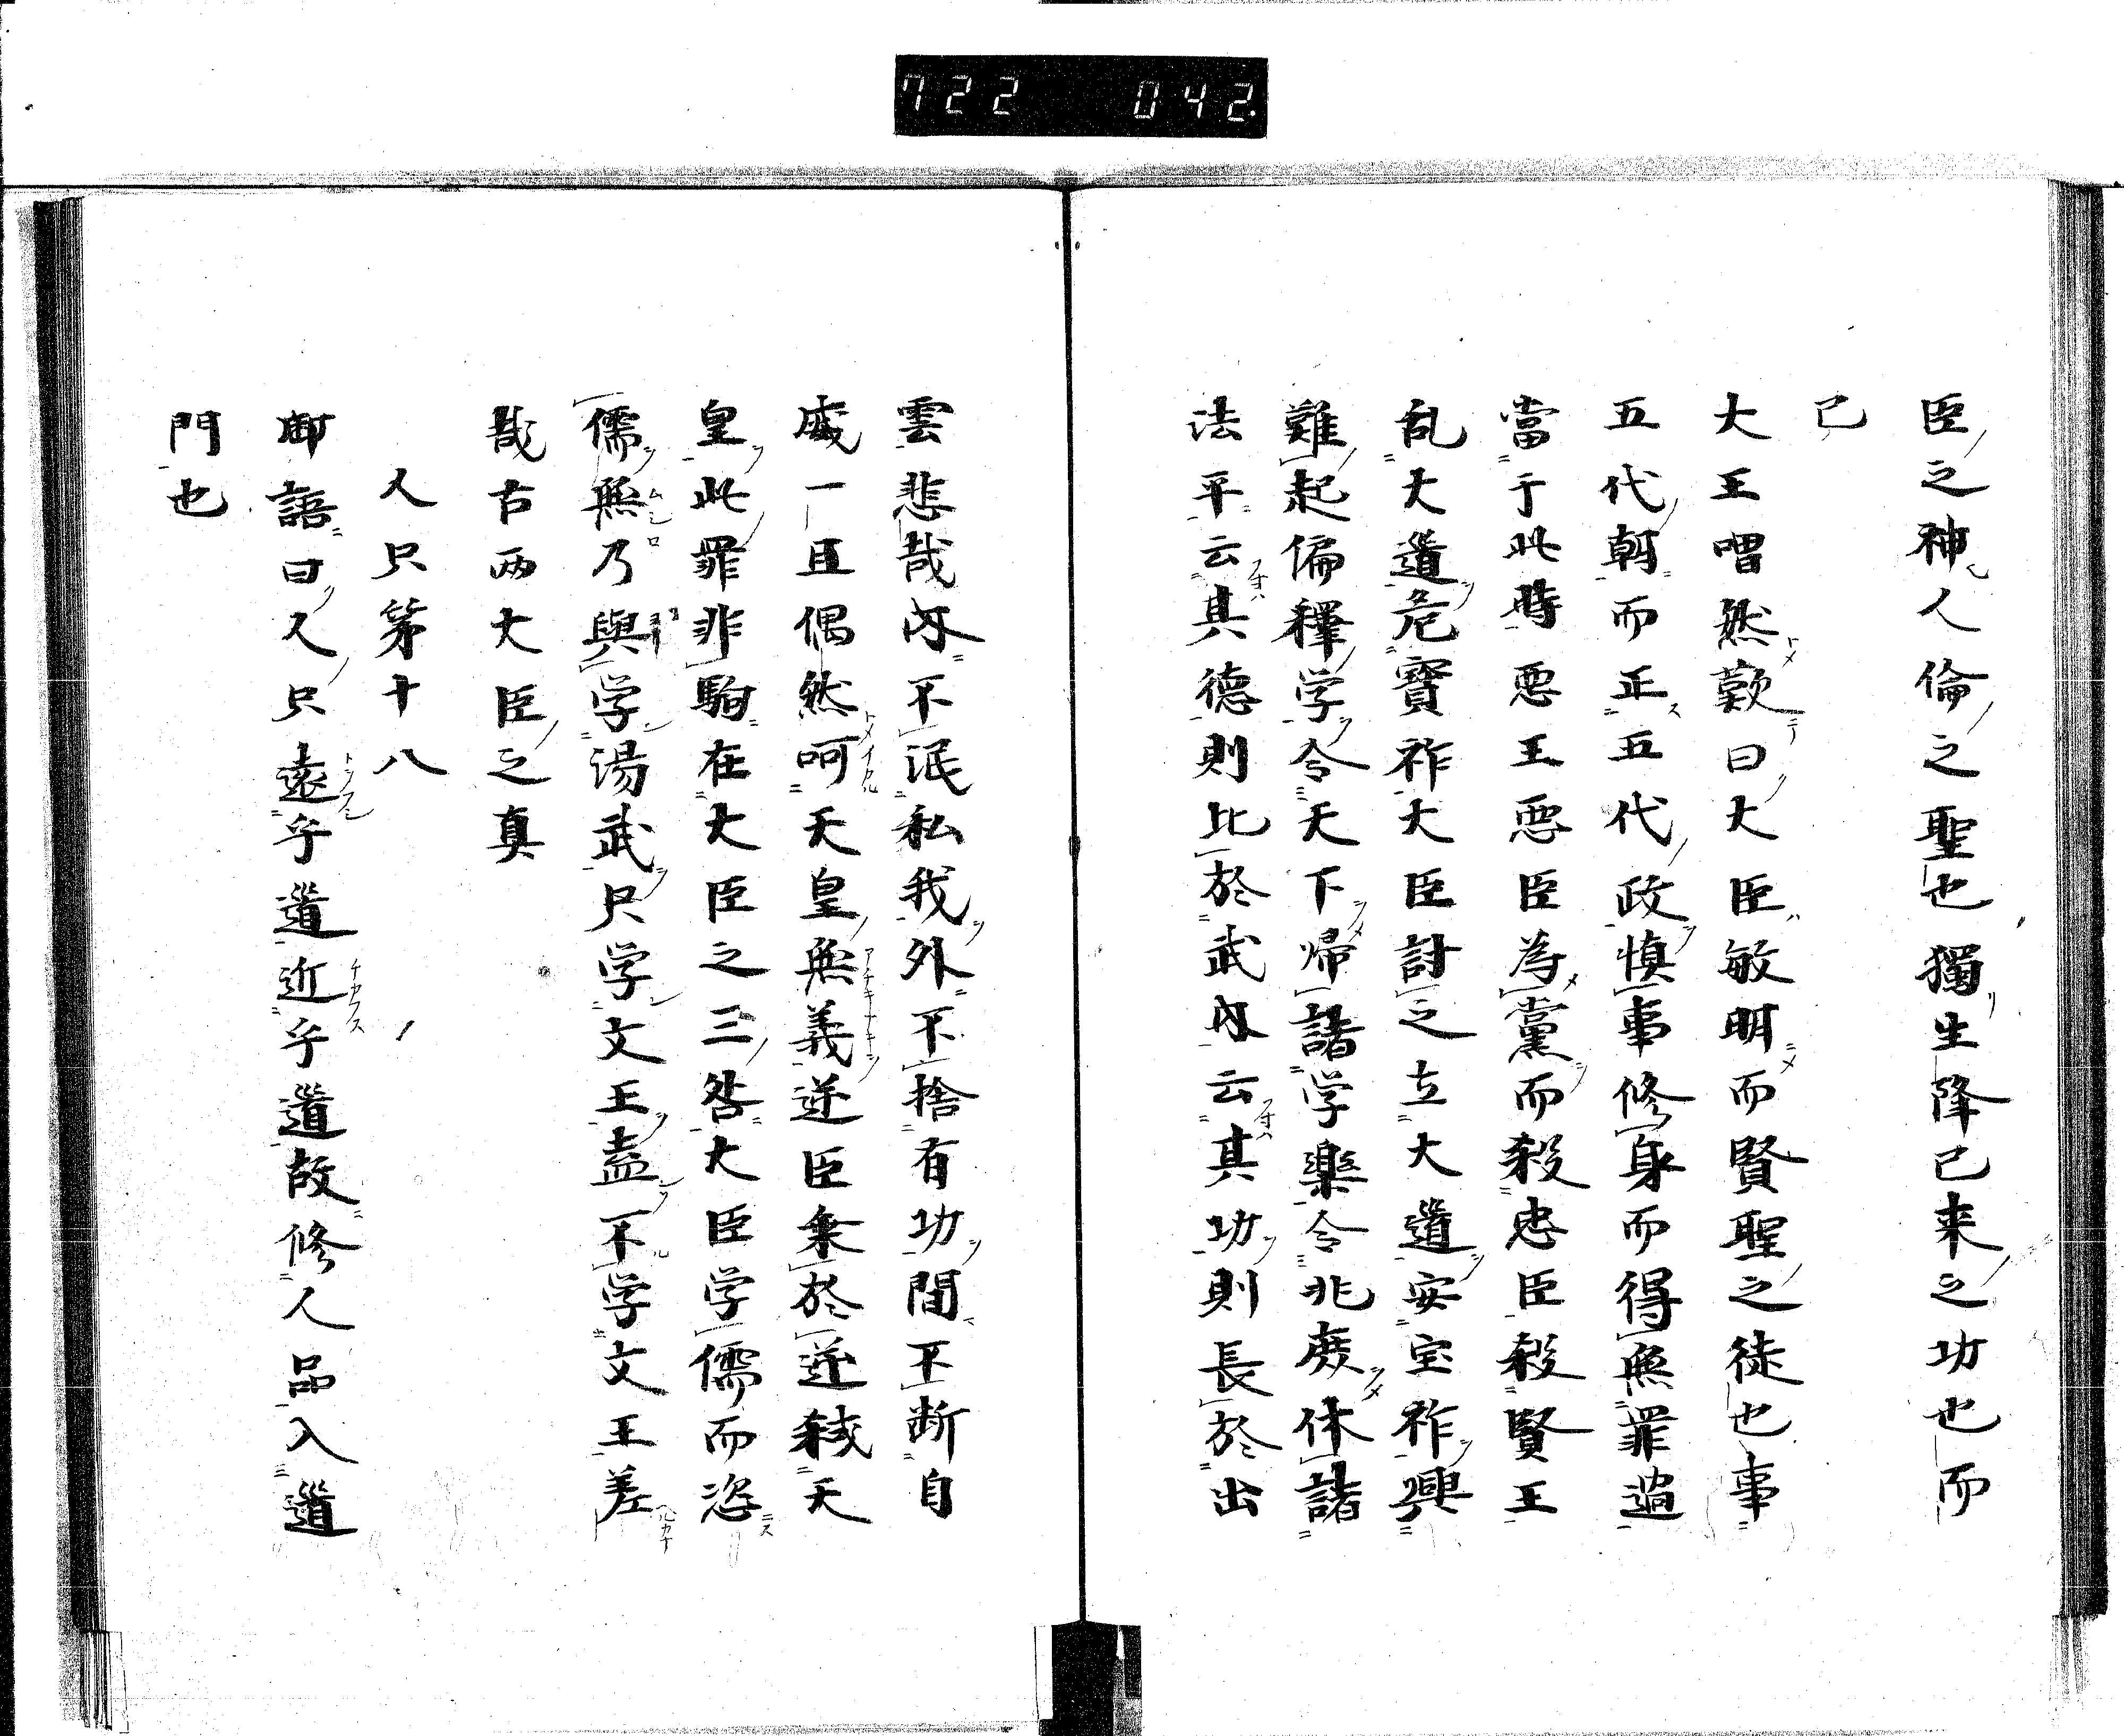 722 042.
臣之神人倫之聖也獨生降已来之功也而
已
大王喟然歎曰大臣敏明而賢聖之徒也事
五代朝而正五代政慎事修身而得無罪過
當于此時悪王悪臣為黨而殺忠臣殺賢王
乱大道危寳祚大臣討之立大道安宝祚興
難起偏釋学令天下帰諸学樂令兆庶休諸
法平云其徳則比於武内云其功則長於出
雲悲哉内不泯私我外不捨有功間不断自
威一旦偶然呵天皇無義逆臣乗於逆弑天
皇此罪非駒在大臣之三咎大臣学儒而恣
儒無乃與学湯武只学文王盍不学文王差
哉古両大臣之真
人只第十八
御語曰人只遠乎道近乎道故修人品入道
門也